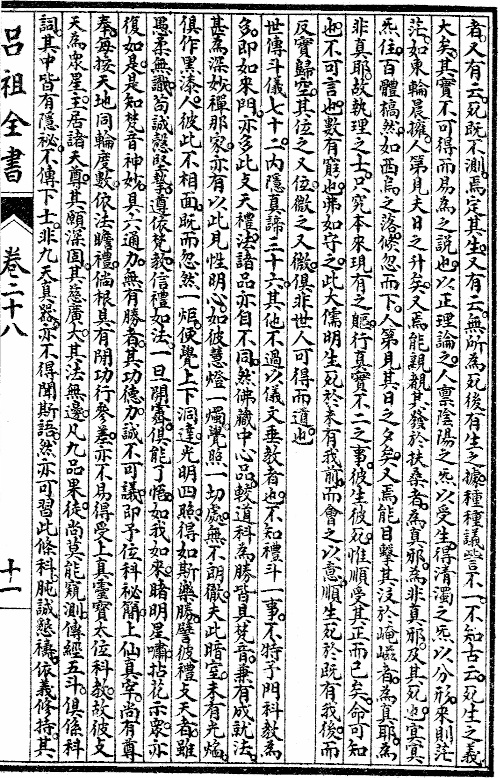 者又有云死既不測焉定其生又有云無所為死後有生之據種種議訾不一不知古云死生之義
大矣其實不可得而易為之說也以正理論之人禀陰陽之炁以受生得清濁之炁以分形來則茫
茫如東輪晨擁人第見夫日之升矣又焉能親覩其發於扶桑者為真耶為非真耶及其死也冥冥
炁往百體槁然如西烏之落倐忽而下人第見其日之夕矣又焉能目擊其沒於崦嵫者為真耶為
非真耶故執理之士只究本來現有之軀行真實不二之事彼生彼死惟順受其正而已矣命可知
也不可言也數有窮也弗如守之此大儒明生死於未有我前而會之以意順生死於既有我後而
反實歸空其位之又位微之又微俱非世人可得而道也
世傳斗儀七十二內隱真諦三十六其他不過以儀文垂教者也不知禮斗一事不特予門科教為
多即如來門亦多此攴天禮法諸品亦自不同然佛藏中心品較道科為勝皆具梵音兼有成就法
甚為深妙禪那家亦有以此見性明心如彼慧燈一燭覺照一切處無不朗徹夫此暗室未有光焰
俱作黑漆人彼此不相面既而忽然一炬便覺上下洞達光明四照得如斯樂勝譬彼禮攴天者雖
愚柔無識苟誠懇堅摯遵依梵教信禮如法一旦開靈俱能了悟如我如來睹明星嘯拈花示眾亦
復如是是知梵音神妙具六通力無有勝者其功德力誠不可議即予位科秘簡上仙真宰尚有尊
奉每按天地同輪度數依法瞻禮倘根具有開功行參差亦不易得受上真靈寶太位科教故彼攴
天為眾星王居諸天尊其願深固其慈廣大其法無邊凡九品果徒尚莫能窺測傳經五斗俱係科
詞其中皆有隱祕不傳下士非九天真器亦不得聞斯語然亦可習此條科肫誠懇禱依義修持其
呂祖全書
卷二十八
十一